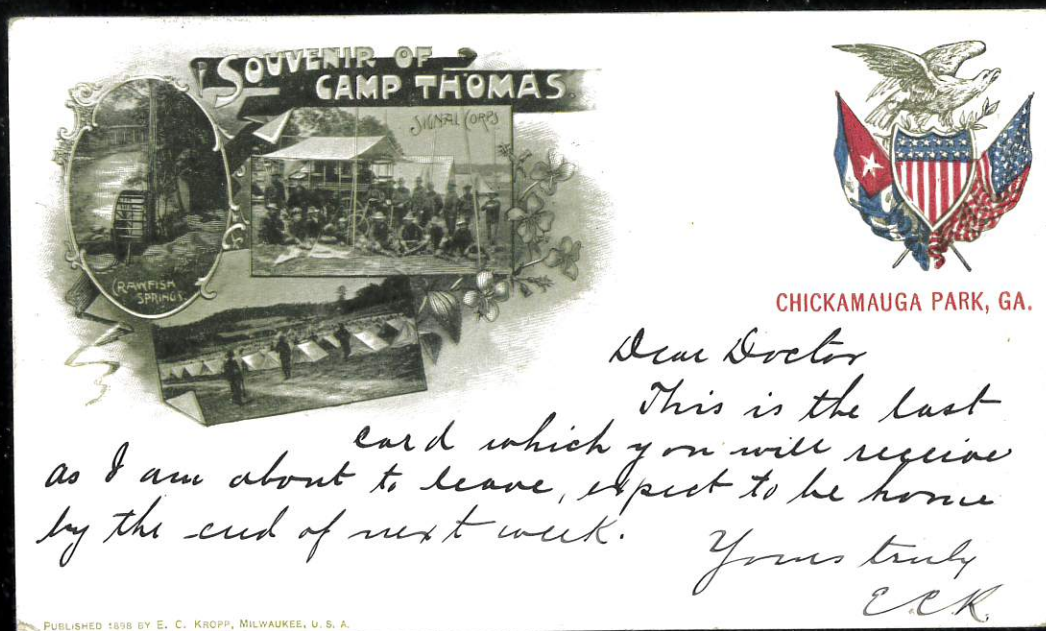 SOUVENIR OF
CAMP THOMAS
SIGNAL CORPS
CRAWFISH
SPRINGS.
CHICKAMAUGA PARK, GA.
Dear Doctor
This is the last
card which you will receive
as I am about to leave, expect to be home
by the end of next week.
Yours truly
E.C.K.
PUBLISHED 1898 BY E. C. KROPP, MILWAUKEE, U. S. A.